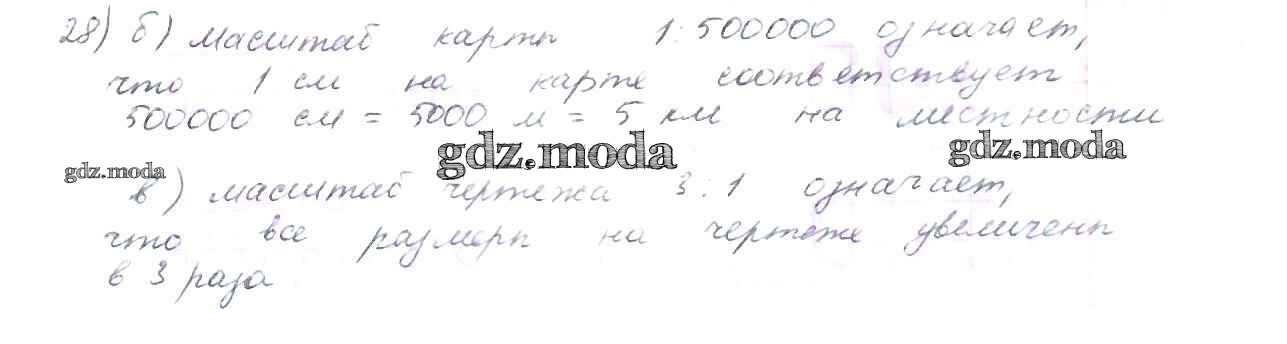 28) б) масштаб карты 1:500000 означает,
что 1 см на карте соответствует
500000 см = 5000 м = 5 км на местности
gdz.moda gdz.moda gdz.moda
в) масштаб чертежа 3:1 означает,
что все размеры на чертеже увеличены
в 3 раза